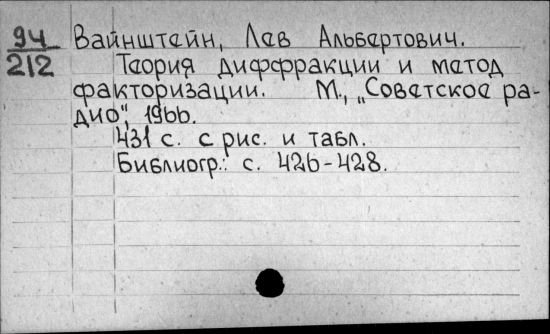 94 Вайнштейн, Лев Альбертович.
212 Теория диффракции и метод
факторизации. М., „Советское ра-
дио", 1966.
431 с. с рис. и табл.
Библиогр.: с. 426-428.